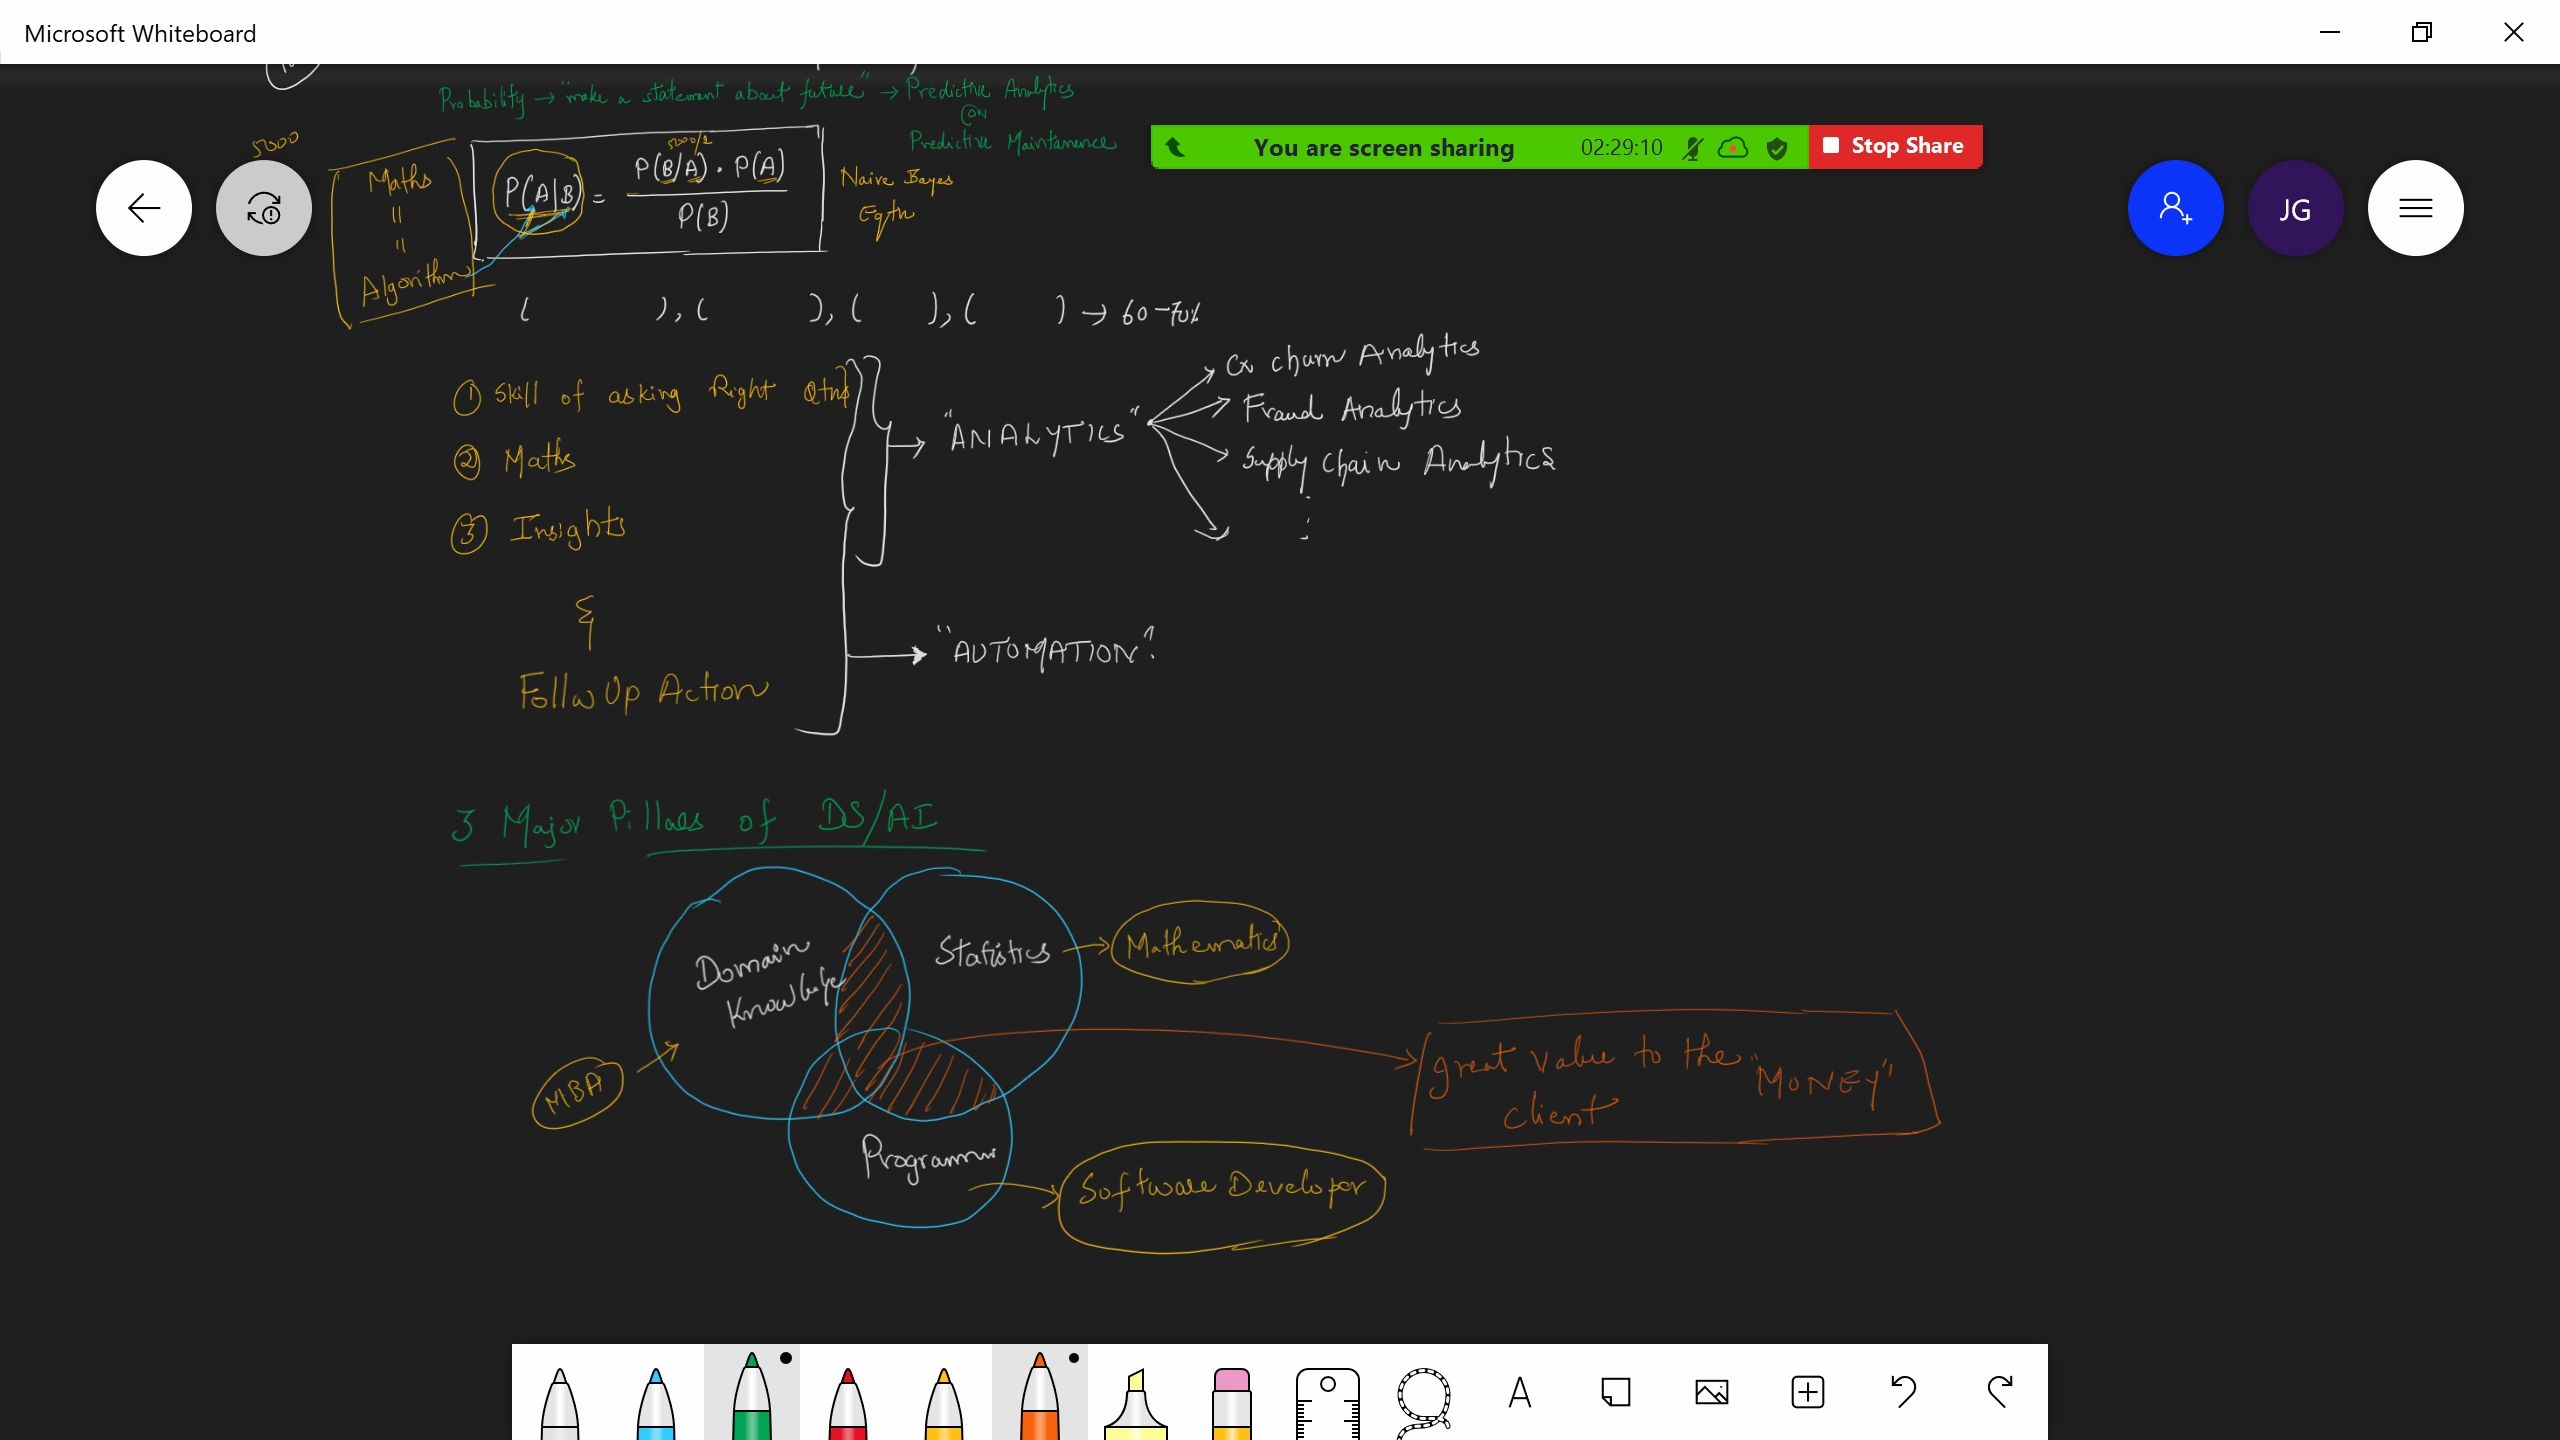 Microsoft Whiteboard
Probability → "make a statement about future" → Predictive Analytics
(or)
Predictive Maintanence
You are screen sharing 02:29:10 Stop Share
5000
Maths
"
"
Algorithm
5000/2
P(A|B) = P(B/A) . P(A)
P(B)
Naive Bayes
Eqtn
JG
( ), ( ), ( ), ( ) → 60-70%
① Skill of asking Right Qtns
② Maths
③ Insights
&
Follw Up Action
"ANALYTICS"
Cx churn Analytics
Fraud Analytics
Supply Chain Analytics
"AUTOMATION".
3 Major Pillars of DS/AI
Domain
Knowledge
Statistics → Mathematics
MBA
great value to the "MONEY"
client
Programm
Software Developer